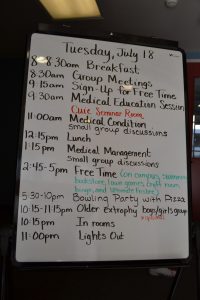 Tuesday, July 18
8-8:30am Breakfast
8:30am Group Meetings
9:15am Sign-Up for Free Time
9:30am Medical Education Session
Cuie Seminar Room
11:00am Medical Condition
small group discussions
12:15pm Lunch
1:15pm Medical Management
small group discussions
2:45-5pm Free Time (on campus, swimming,
bookstore, lawn games, craft room,
bingo, and ultimate frisbee)
5:30-10pm Bowling Party with Pizza
10:15-11:15pm Older extrophy boys/girls group
10:15pm In rooms
11:00pm Lights Out